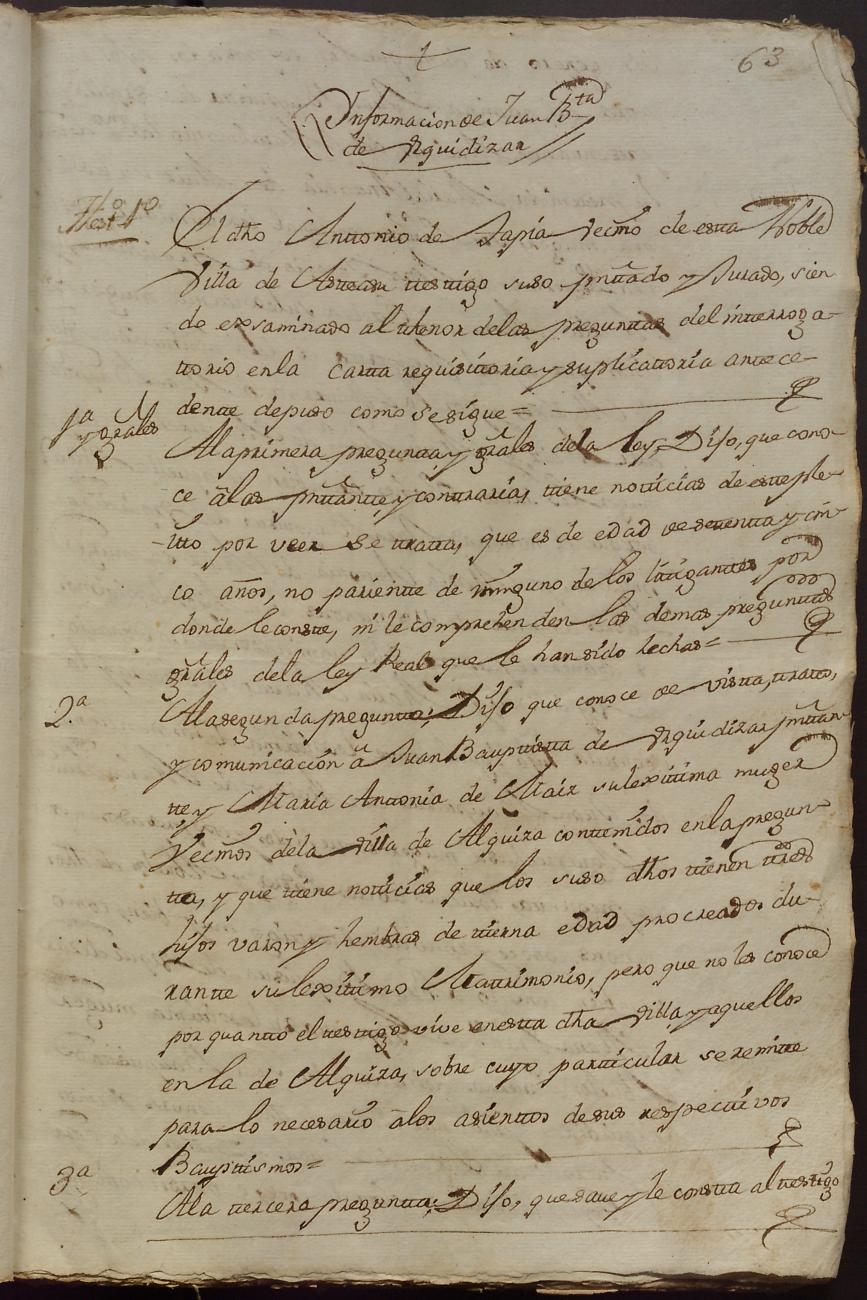 63
Informacion de Juan Bta
de Eguidizar
Testo 1o
El dho Anttonio de Tapia Vecino de esta Noble
Villa de Asteasu testtigo suso pnttado y Jurado, sien
do exsaminado al thenor de las preguntas del interroga-
ttorio en la cartta requisittoria y suplicattoria antece-
dentte depuso como se sigue=
1a y grales
A la primera pregunta y grales de la ley, Dijo, que cono-
ce â las pnttantte y conttraria, ttiene notticias de este plei-
tto por veer se tratta, que es de edad de settentta y cin-
co años, no pariente de ninguno de los littiganttes por
donde le constte, ni le comprehenden las demas preguntas
grales de la ley Real que le han sido hechas=
2a
A la segunda pregunta, Dijo que conoce de vistta, tratto,
y comunicación â Juan Bauptistta de Eguidizar pnttan-
tte, y Maria Antonia de Maiz su lexittima muger
Vecinos de la villa de Alquiza conttenidos en la pregun-
tta, y que ttiene notticias que los suso dhos ttienen ttres
hijos varon y hembras de ttierna edad procreados du-
rantte su lexittimo Mattrimonio, pero que no les conoce
por quantto el testtigo vive en estta dha villa y aquellos
en la de Alquiza, sobre cuyo partticular se remitte
para lo necesario â los asienttos de sus respecttivos
Bauptismos=
3a
A la ttercera pregunta, Dijo, que save y le constta al testtigo